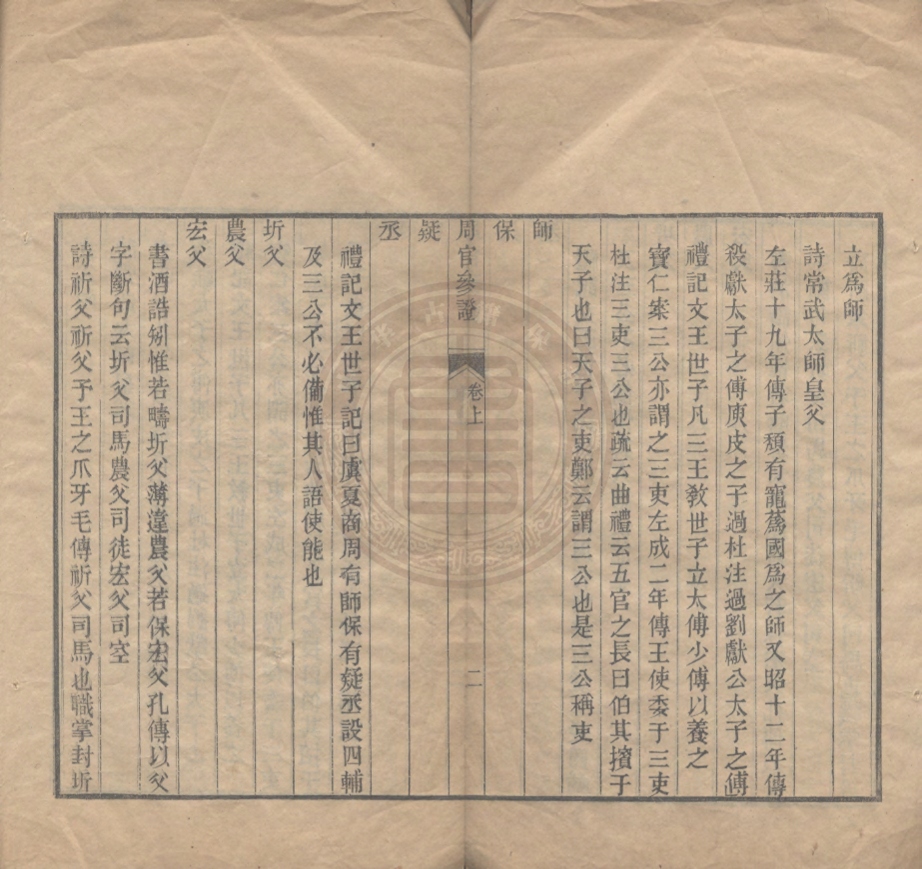 立爲師
詩常武太師皇父
左莊十九年傳子頹有寵蔿國爲之師又昭十二年傳
殺獻太子之傅庾皮之子過杜注過劉獻公太子之傅
禮記文王世子凡三王敎世子立太傅少傅以養之
寶仁案三公亦謂之三吏左成二年傳王使委于三吏
杜注三吏三公也疏云曲禮云五官之長曰伯其擯于
天子也曰天子之吏鄭云謂三公也是三公稱吏
師
保
周官參證 卷上 二
疑
丞
禮記文王世子記曰虞夏商周有師保有疑丞設四輔
及三公不必備惟其人語使能也
圻父
農父
宏父
書酒誥矧惟若疇圻父薄違農父若保宏父孔傳以父
字斷句云圻父司馬農父司徒宏父司空
詩祈父祈父予王之爪牙毛傳祈父司馬也職掌封圻